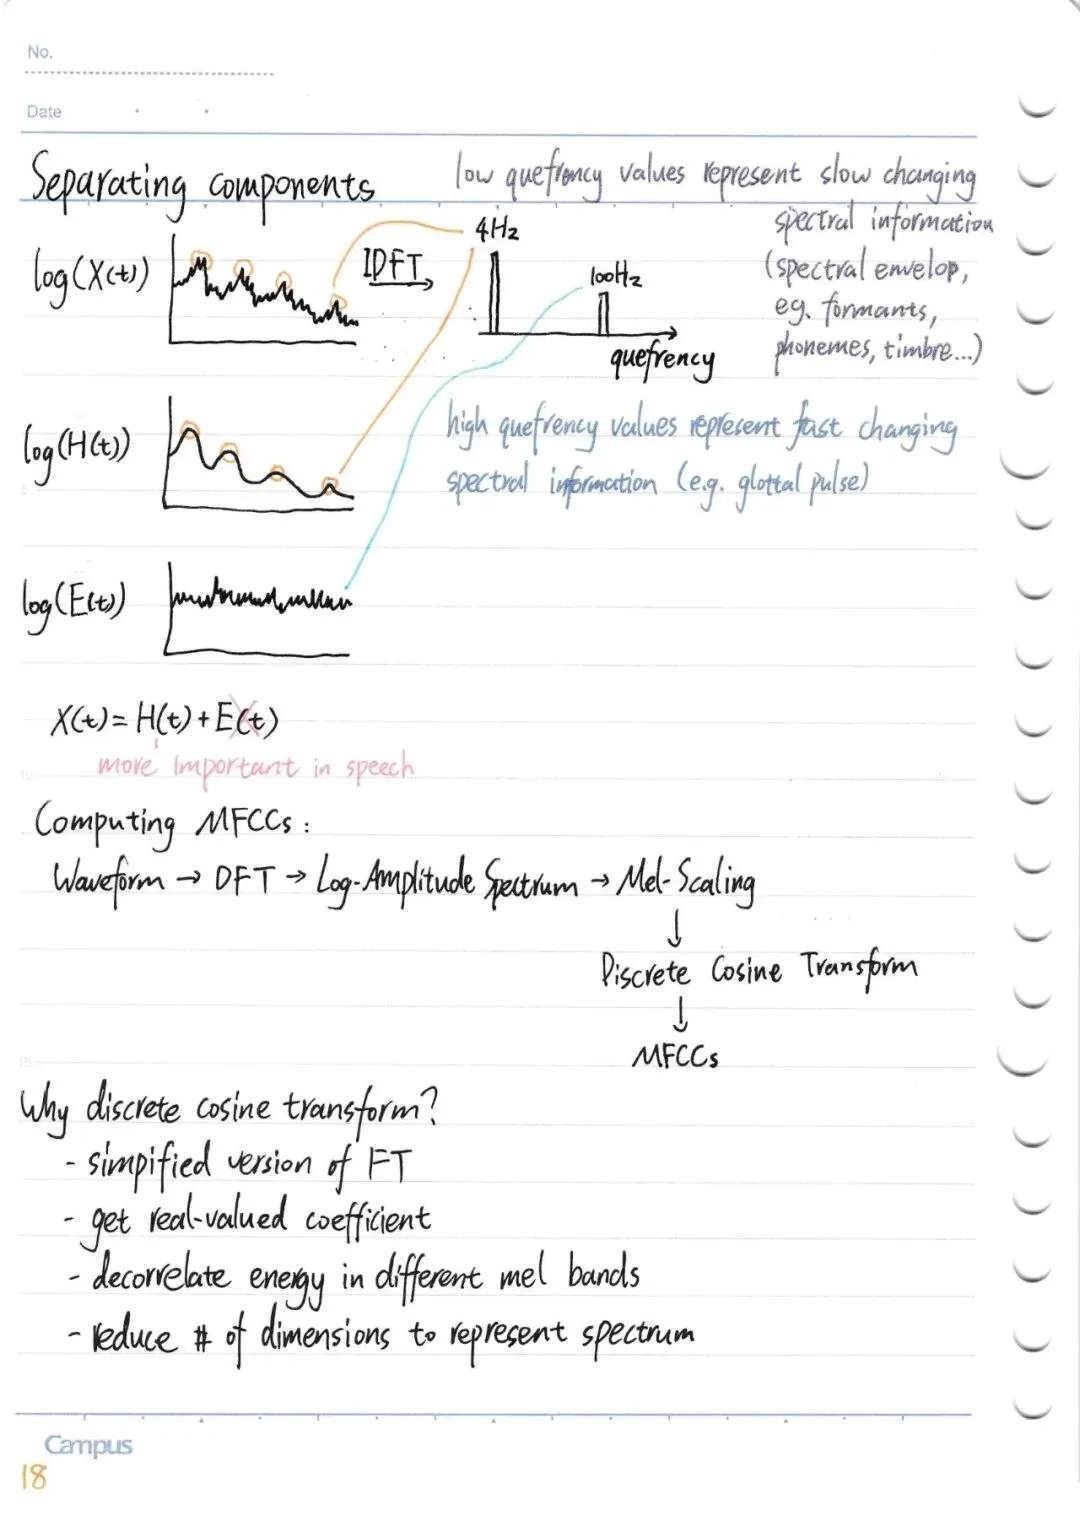 No.
Date
Separating components
low quefrency values represent slow changing
spectral information
(spectral envelop,
eg. formants,
phonemes, timbre...)
log(X(t))
IDFT
4Hz
100Hz
quefrency
log(H(t))
high quefrency values represent fast changing
spectral information (e.g. glottal pulse)
log(E(t))
X(t) = H(t) + E(t)
more important in speech
Computing MFCCs :
Waveform → DFT → Log-Amplitude Spectrum → Mel-Scaling
↓
Discrete Cosine Transform
↓
MFCCs
Why discrete cosine transform?
- simpified version of FT
- get real-valued coefficient
- decorrelate energy in different mel bands
- reduce # of dimensions to represent spectrum
Campus
18